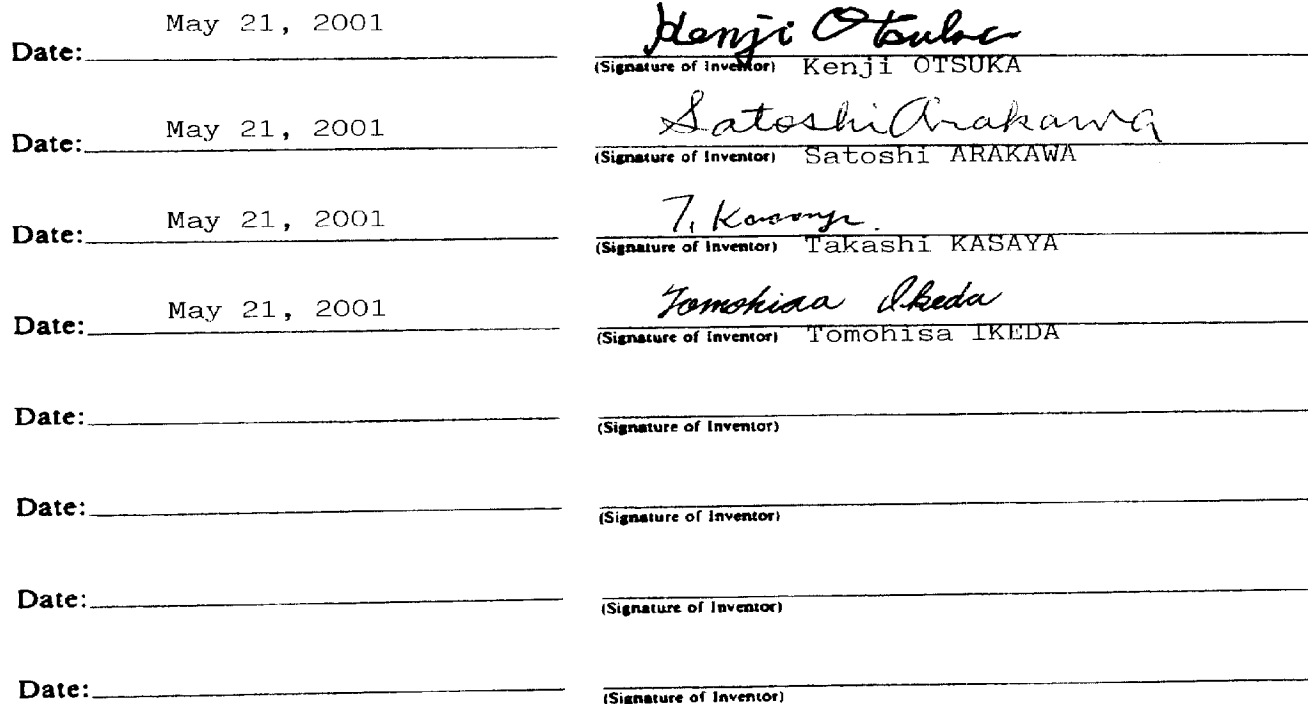 May 21, 2001
Date: Kenji Otsuka
(Signature of Inventor) Kenji OTSUKA
May 21, 2001
Date: Satoshi Arakawa
(Signature of Inventor) Satoshi ARAKAWA
May 21, 2001
Date: T. Kasaya.
(Signature of Inventor) Takashi KASAYA
May 21, 2001
Date: Tomohisa Ikeda
(Signature of Inventor) Tomohisa IKEDA
Date:
(Signature of Inventor)
Date:
(Signature of Inventor)
Date:
(Signature of Inventor)
Date:
(Signature of Inventor)